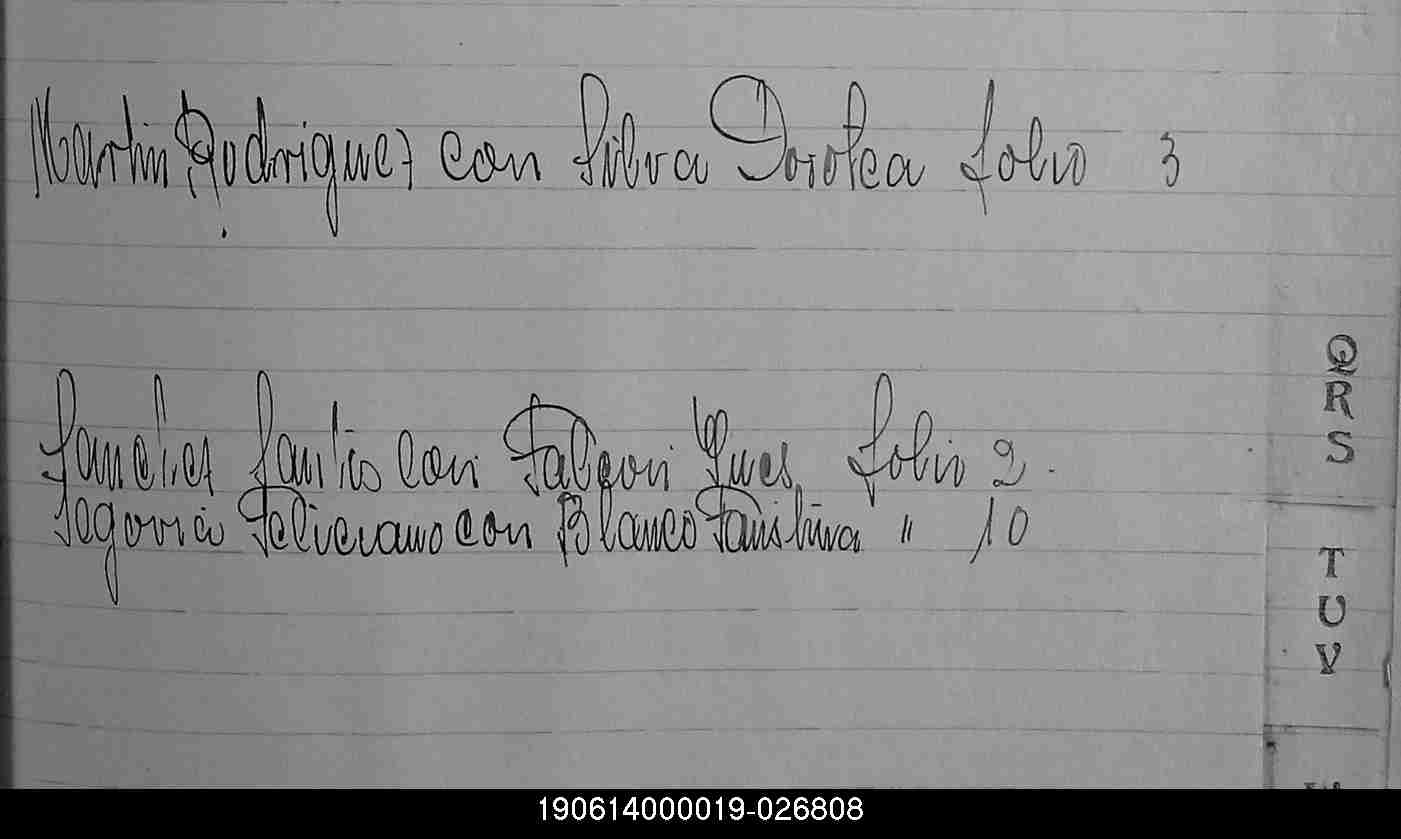 Martin Rodriguez con Silva Dorotea folio 3
Sanchez Santos con Falcon Ynes folio 2
Segovia Feliciano con Blanco " 10
Q
R
S
T
U
V
190614000019-026808